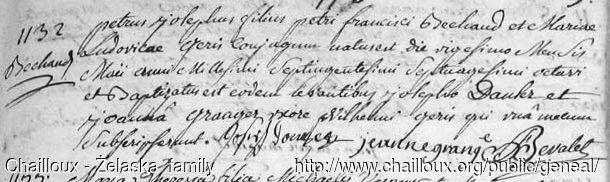 1132
Bechaud
petrus josephus filius petri francisci Bechaud et Mariae
Ludovicae Geris Conjugum natus est die vigesimo Mensis
Maii anni Millesimi Septingentesimi Septuagesimi octavi
et Baptizatus est eodem levantibus josepho Danker et
joanna Granger uxore Guilhelmi Geris qui una mecum
Subscripserunt. jeannegrange Revalet
Chailloux - Zelaska family http://www.chailloux.org/public/geneal/
1133